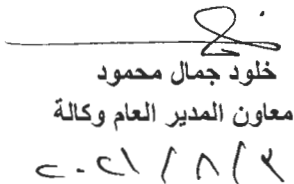 خلود جمال محمود
معاون المدير العام وكالة
٢٠٢١/٨/٣